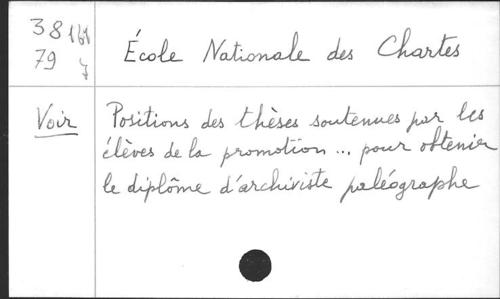 38
79
École Nationale des Chartes
Voir
Positions des thèses soutenues par les
élèves de la promotion ... pour obtenir
le diplôme d'archiviste paléographe